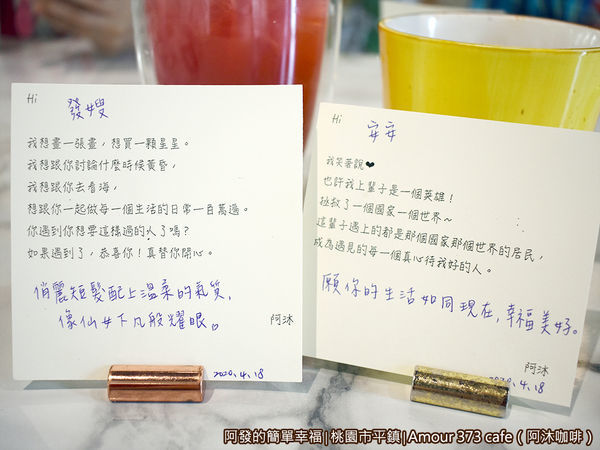 Hi
發嫂
我想畫一張畫，想買一顆星星。
我想跟你討論什麼時候黃昏，
我想跟你去看海，
想跟你一起做每一個生活的日常一百萬遍。
你遇到你想要這樣過的人了嗎？
如果遇到了，恭喜你！真替你開心。
俏麗短髮配上溫柔的氣質，
像仙女下凡般耀眼。
阿沐
2020.4.18
Hi
安安
我笑著說❤
也許我上輩子是一個英雄！
拯救了一個國家一個世界~
這輩子遇上的都是那個國家那個世界的居民，
成為遇見的每一個真心待我好的人。
願你的生活如同現在，幸福美好。
阿沐
2020.4.18
阿發的簡單幸福|桃園市平鎮|Amour 373 cafe（阿沐咖啡）